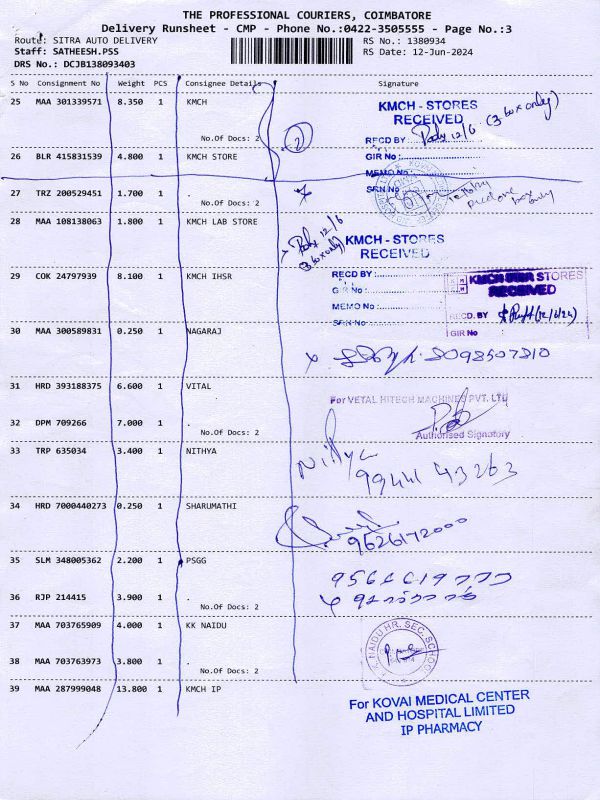 THE PROFESSIONAL COURIERS, COIMBATORE
Delivery Runsheet - CMP - Phone No.:0422-3505555 - Page No.:3
Route: SITRA AUTO DELIVERY RS No.: 1380934
Staff: SATHEESH.PSS RS Date: 12-Jun-2024
DRS No.: DCJB138093403
S No Consignment No Weight PCS Consignee Details Signature
25 MAA 301339571 8.350 1 KMCH
KMCH - STORES
RECEIVED
(3 box only)
No.Of Docs: 2
2
RECD BY 12/6
26 BLR 415831539 4.800 1 KMCH STORE
GIR No :
MEMO No :
SRN No
27 TRZ 200529451 1.700 1
box only
28 MAA 108138063 1.800 1 KMCH LAB STORE
12/6
(3 box only)
KMCH - STORES
RECEIVED
29 COK 24797939 8.100 1 KMCH IHSR
RECD BY :
GIR No :
MEMO No :
SRN No
STORES
RECEIVED
RECD. BY (12/6/24)
GIR No
30 MAA 300589831 0.250 1 NAGARAJ
8098507810
31 HRD 393188375 6.600 1 VITAL
For VETAL HITECH MACHINES PVT. LTD
Authorised Signatory
32 DPM 709266 7.000 1 .
No.Of Docs: 2
33 TRP 635034 3.400 1 NITHYA
Nithya
9944143263
34 HRD 7000440273 0.250 1 SHARUMATHI
9626172000
35 SLM 348005362 2.200 1 PSGG
36 RJP 214415 3.900 1 .
No.Of Docs: 2
37 MAA 703765909 4.000 1 KK NAIDU
NAIDU HR. SEC. SCHOOL
38 MAA 703763973 3.800 1 .
No.Of Docs: 2
39 MAA 287999048 13.800 1 KMCH IP
For KOVAI MEDICAL CENTER
AND HOSPITAL LIMITED
IP PHARMACY